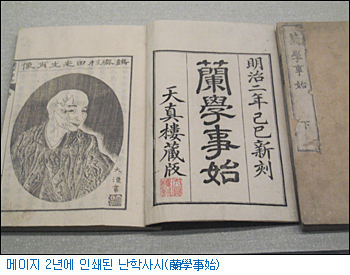 鷧齋杉田先生肖像
明治二年己巳新刻
蘭學事始
天真樓藏版
蘭學事始 下
메이지 2년에 인쇄된 난학사시(蘭學事始)